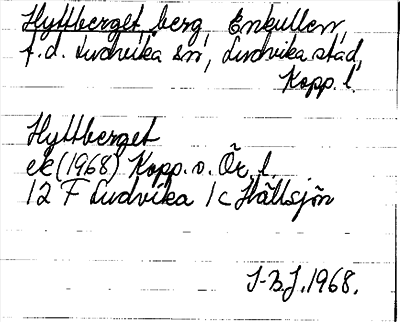 Hyttberget berg, Enkullen,
f.d. Ludvika sn, Ludvika stad,
Kopp. l.
Hyttberget
ek (1968) Kopp. o. Ör. l.
12 F Ludvika 1c Hällsjön
J-B.J. 1968.